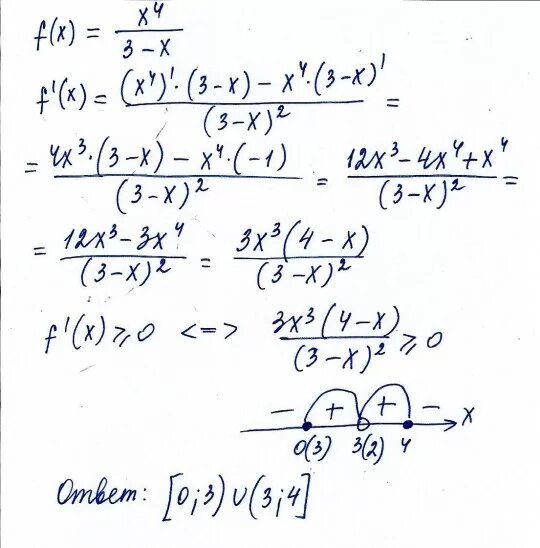 f(x) = x⁴/(3-x)
f'(x) = ((x⁴)'·(3-x) - x⁴·(3-x)')/(3-x)² =
= (4x³·(3-x) - x⁴·(-1))/(3-x)² = (12x³-4x⁴+x⁴)/(3-x)² =
= (12x³-3x⁴)/(3-x)² = 3x³(4-x)/(3-x)²
f'(x) ⩾ 0 <=> 3x³(4-x)/(3-x)² ⩾ 0
- + + - x
0(3) 3(2) 4
Ответ: [0;3)∪(3;4]